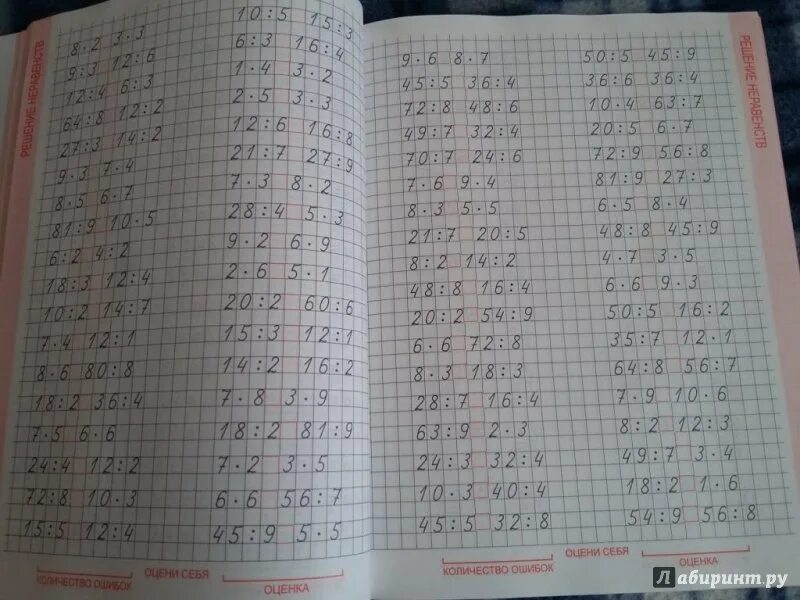 РЕШЕНИЕ НЕРАВЕНСТВ
8·2 3·3
9:3 12:6
12:4 6:3
64:8 12:2
27:3 14:2
9·3 7·4
8·5 6·7
81:9 10·5
6:2 4:2
18:3 12:4
10:2 14:7
7·4 12:1
8·6 80:8
18:2 36:4
7·5 6·6
24:4 12:2
72:8 10·3
15:5 12:4
10:5 15:3
6:3 16:4
1·4 3·2
2·5 3·3
12:6 16:8
21:7 27:9
7·3 8·2
28:4 5·3
9·2 6·9
2·6 5·1
20:2 60:6
15:3 12:1
14:2 16:2
7·8 3·9
18:2 81:9
7·2 3·5
6·6 56:7
45:9 5·5
КОЛИЧЕСТВО ОШИБОК
ОЦЕНИ СЕБЯ
ОЦЕНКА
9·6 8·7
45:5 36:4
72:8 48:6
49:7 32:4
70:7 24:6
7·6 9·4
8·3 5·5
21:7 20:5
8:2 14:2
48:8 16:4
20:2 54:9
6·6 72:8
8·3 18:3
28:7 16:4
63:9 2·3
24:3 32:4
10·3 40:4
45:5 32:8
50:5 45:9
36:6 36:4
10·4 63:7
20:5 6·7
72:9 56:8
81:9 27:3
6·5 8·4
48:8 45:9
4·7 3·5
6·6 9·3
50:5 16:2
35:7 12·1
64:8 56:7
7·9 10·6
8:2 12:3
49:7 3·4
18:2 1·6
54:9 56:8
РЕШЕНИЕ НЕРАВЕНСТВ
КОЛИЧЕСТВО ОШИБОК
ОЦЕНИ СЕБЯ
ОЦЕНКА
Лабиринт.ру